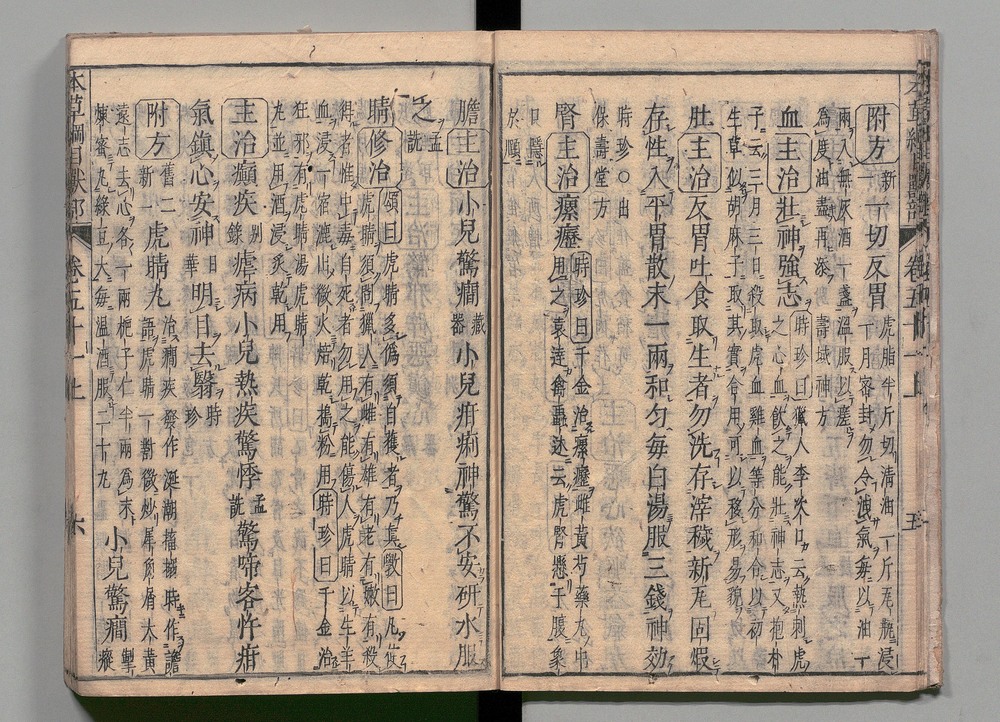 附方新一一切反胃虎脂半斤切清油一斤瓦瓶浸
一月密封勿令洩氣每以油一
兩入無灰酒一盞溫服以瘥
爲度油盡再添壽域神方
血主治壯神強志時珍曰獵人李次口云熱刺虎
之心血飲之能壯神志又抱朴
子云三月三日殺取虎血雞血等分和合以初
生草似胡麻子取其實合用可以移形易貌
肚主治反胃吐食取生者勿洗存滓穢新瓦固煅
存性入平胃散末一兩和勻每白湯服三錢神効
時珍○出
保壽堂方
腎主治瘰癧時珍曰千金治瘰癧雌黃芍藥丸中
用之袁達禽蟲述云虎腎懸于腹象
口隱
於頤
膽主治小兒驚癇藏器小兒疳痢神驚不安研水服
之孟詵
睛修治頌曰虎睛多僞須自獲者乃真斅曰凡使
虎睛須問獵人有雌有雄有老有嫩有殺
得者惟中毒自死者勿用之能傷人虎睛以生羊
血浸一宿漉出微火焙乾搗粉用時珍曰千金治
狂邪有虎睛湯虎睛
丸並用酒浸炙乾用
主治癲疾別錄瘧病小兒熱疾驚悸孟詵驚啼客忤疳
氣鎮心安神日華明目去翳時珍
附方舊一新二虎睛丸治癇疾發作涎潮搐搦時作譫
語虎睛一對微炒犀角屑大黃
遠志去心各一兩梔子仁半兩爲末
煉蜜丸綠豆大每溫酒服二十丸小兒驚癇掣瘲
本草綱目獸部
卷五十一上
六
卷五十一上
五